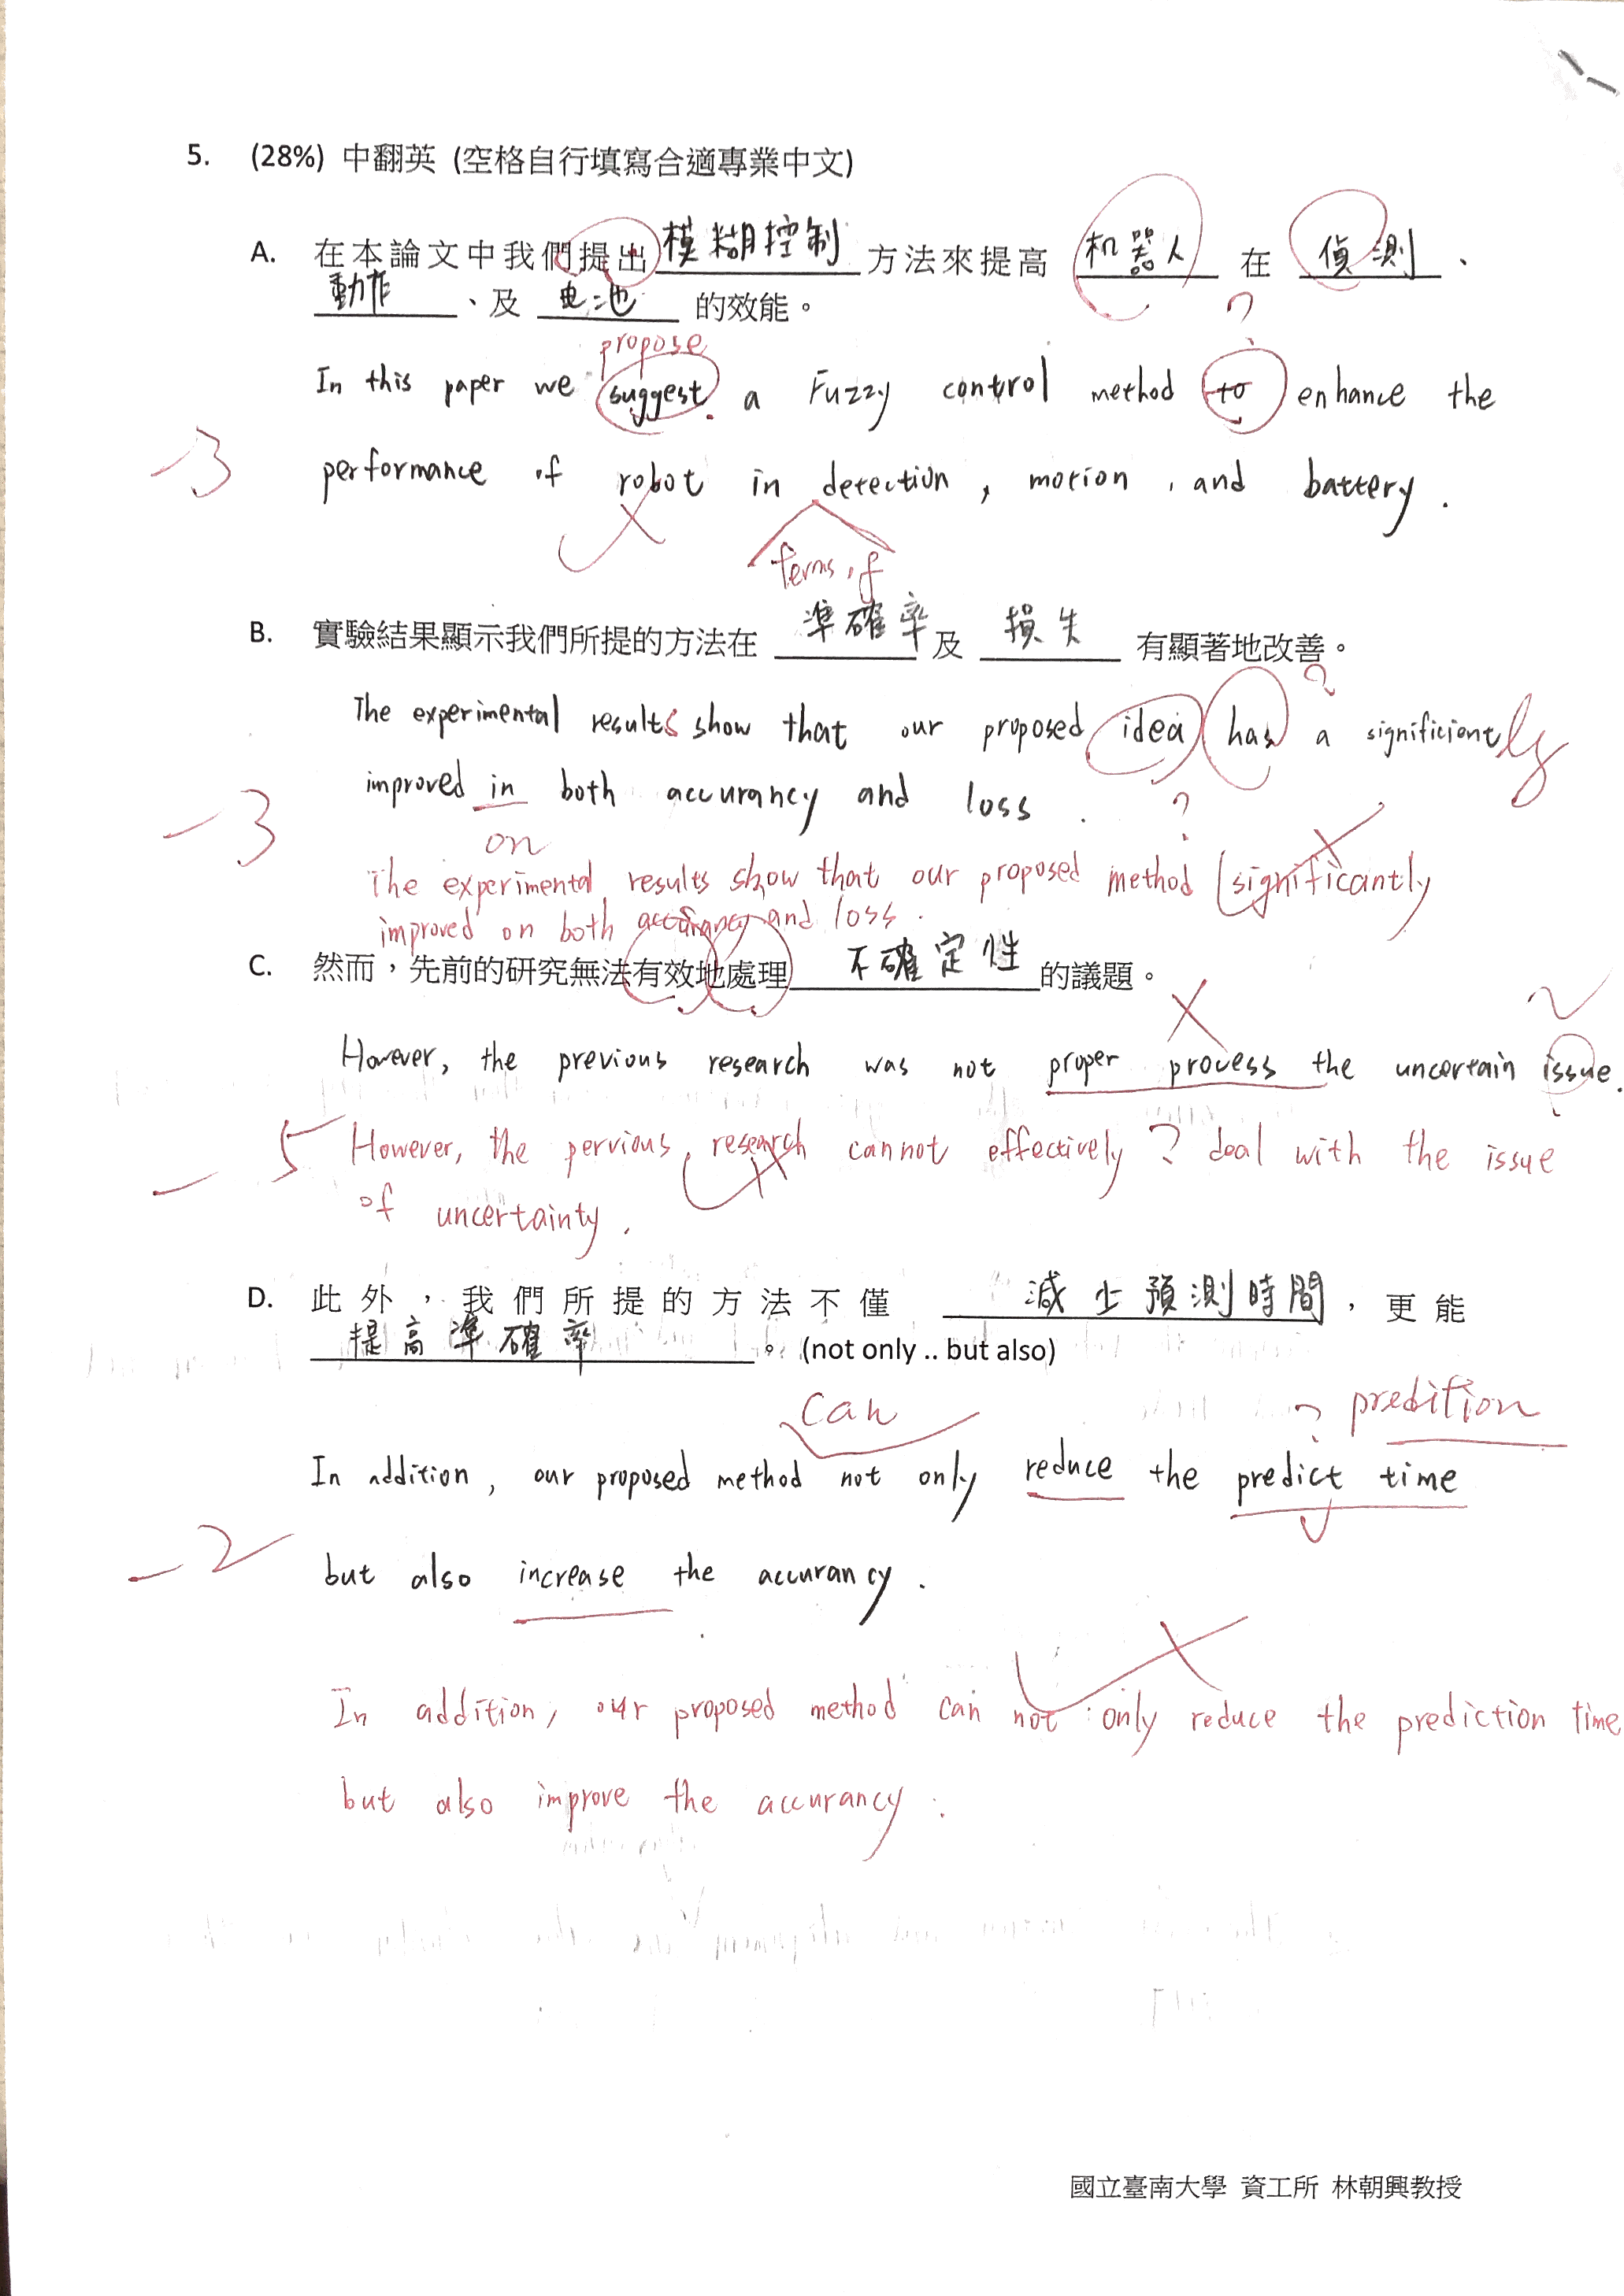 5. (28%) 中翻英 (空格自行填寫合適專業中文)
A. 在本論文中我們提出 模糊控制 方法來提高 机器人 在 偵測、
動作、及 电池 的效能。
propose
In this paper we suggest a Fuzzy control method to enhance the
-3
performance of robot in detection, motion, and battery.
terms of
B. 實驗結果顯示我們所提的方法在 準確率 及 損失 有顯著地改善。
The experimental results show that our proposed idea has a significiently
improved in both accurancy and loss.
-3
on
The experimental results show that our proposed method significantly
improved on both accurancy and loss.
C. 然而，先前的研究無法有效地處理 不確定性 的議題。
However, the previous research was not proper process the uncertain issue.
-5
However, the pervious research cannot effectively deal with the issue
of uncertainty.
D. 此外，我們所提的方法不僅 減少預測時間，更能
提高準確率。(not only .. but also)
can
predition
In addition, our proposed method not only reduce the predict time
-2
but also increase the accurancy.
In addition, our proposed method can not only reduce the prediction time
but also improve the accurancy.
國立臺南大學 資工所 林朝興教授